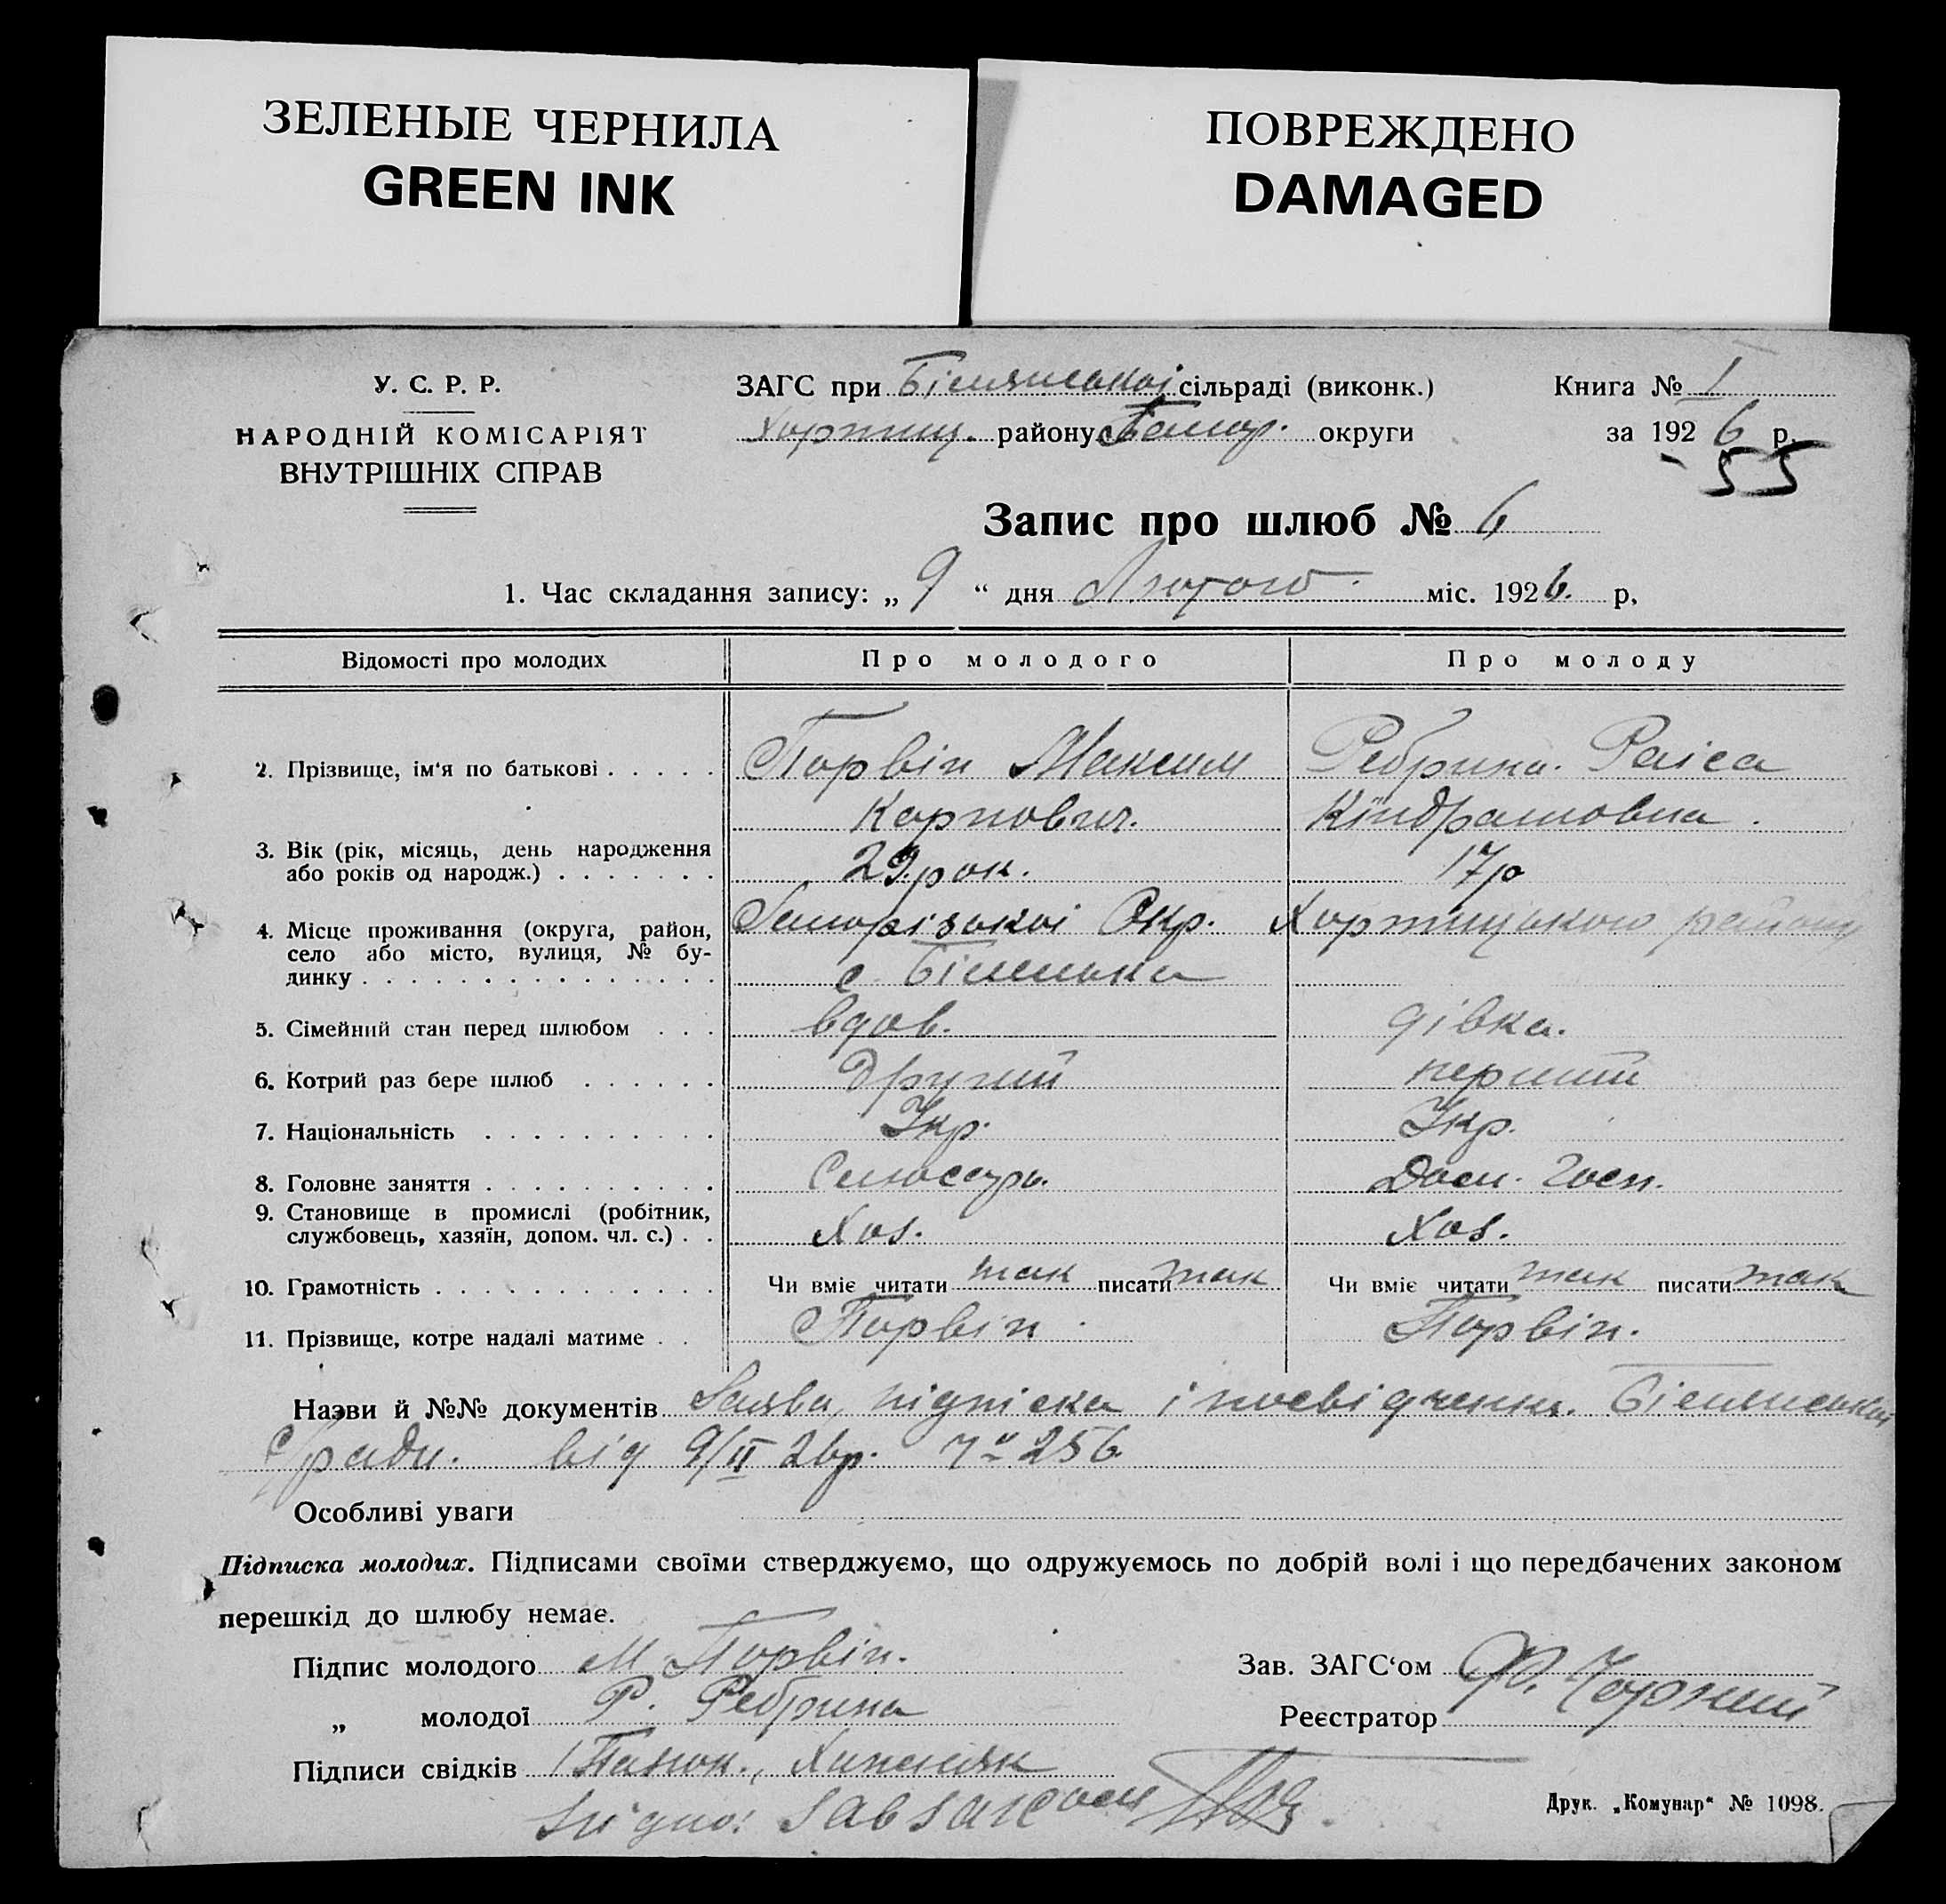 ЗЕЛЕНЫЕ ЧЕРНИЛА
GREEN INK
ПОВРЕЖДЕНО
DAMAGED
У. С. Р. Р.
НАРОДНІЙ КОМІСАРІЯТ
ВНУТРІШНІХ СПРАВ
ЗАГС при сільраді (виконк.)
Хортиц. району Запор. округи
Книга № 1
за 1926 р.
55
Запис про шлюб № 6
1. Час складання запису: „ 9 “ дня Лютого міс. 1926. р,
Відомості про молодих Про молодого Про молоду
2. Прізвище, ім'я по батькові Порвін Максим Ребрина. Раіса
Карпович. Кіндратовна.
3. Вік (рік, місяць, день народження 29.рок. 17р
або років од народж.)
4. Місце проживання (округа, район, Запорізькоі Окр. Хортицького району
село або місто, вулиця, № бу- с.
динку
5. Сімейний стан перед шлюбом вдов. дівка.
6. Котрий раз бере шлюб Другий перший
7. Національність Укр. Укр.
8. Головне заняття Дом. Госп.
9. Становище в промислі (робітник, Хоз. Хоз.
службовець, хазяїн, допом. чл. с.)
10. Грамотність Чи вміє читати так писати так Чи вміє читати так писати так
11. Прізвище, котре надалі матиме Порвін. Порвін.
Назви й №№ документів Заява, підпіска і посвідчення.
С/ради. від 9/II 26р. № 256
Особливі уваги
Підписка молодих. Підписами своїми стверджуємо, що одружуємось по добрій волі і що передбачених законом
перешкід до шлюбу немає.
Підпис молодого М. Порвін.
„ молодої Р. Ребрина
Зав. ЗАГС'ом Ф. Чорний
Реєстратор
Підписи свідків
Друк. „Комунар“ № 1098.
Згідно: Зав Загсом